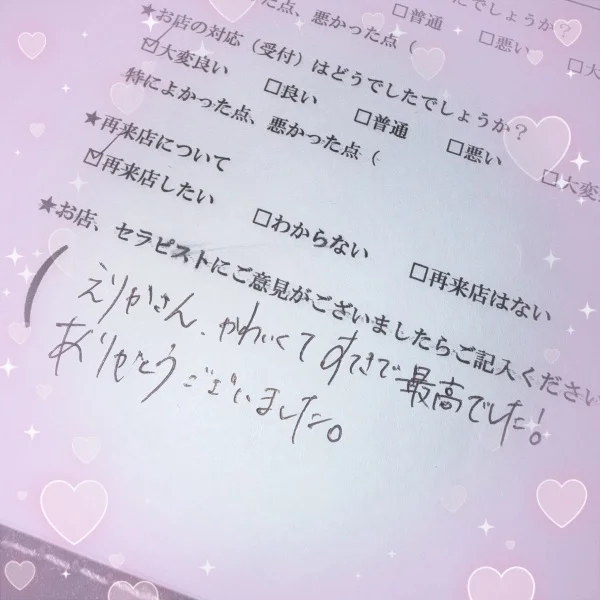 た点、悪かった点（
□普通
□悪い
□大
たでしょうか？
★お店の対応（受付）はどうでしたでしょうか？
☑大変良い □良い □普通 □悪い □大変
特によかった点、悪かった点（
★再来店について
☑再来店したい □わからない □再来店はない
★お店、セラピストにご意見がございましたらご記入ください
（えりかさん、かわいくてすてきで最高でした！
ありがとうございました。